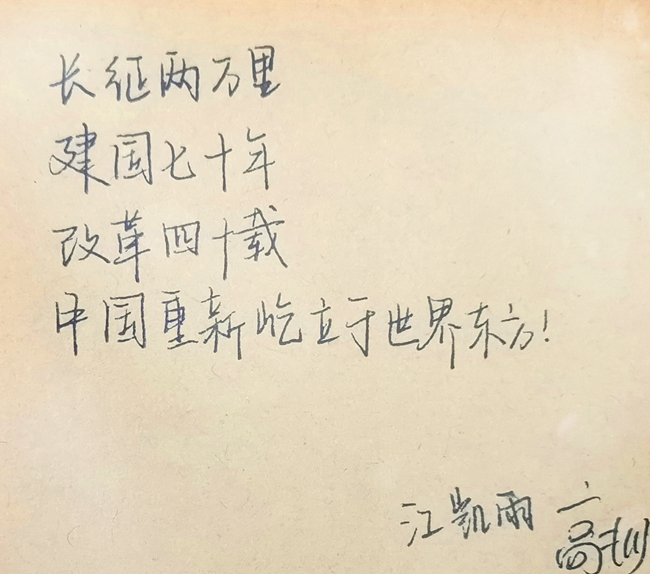 长征两万里
建国七十年
改革四十载
中国重新屹立于世界东方!
江凯雨